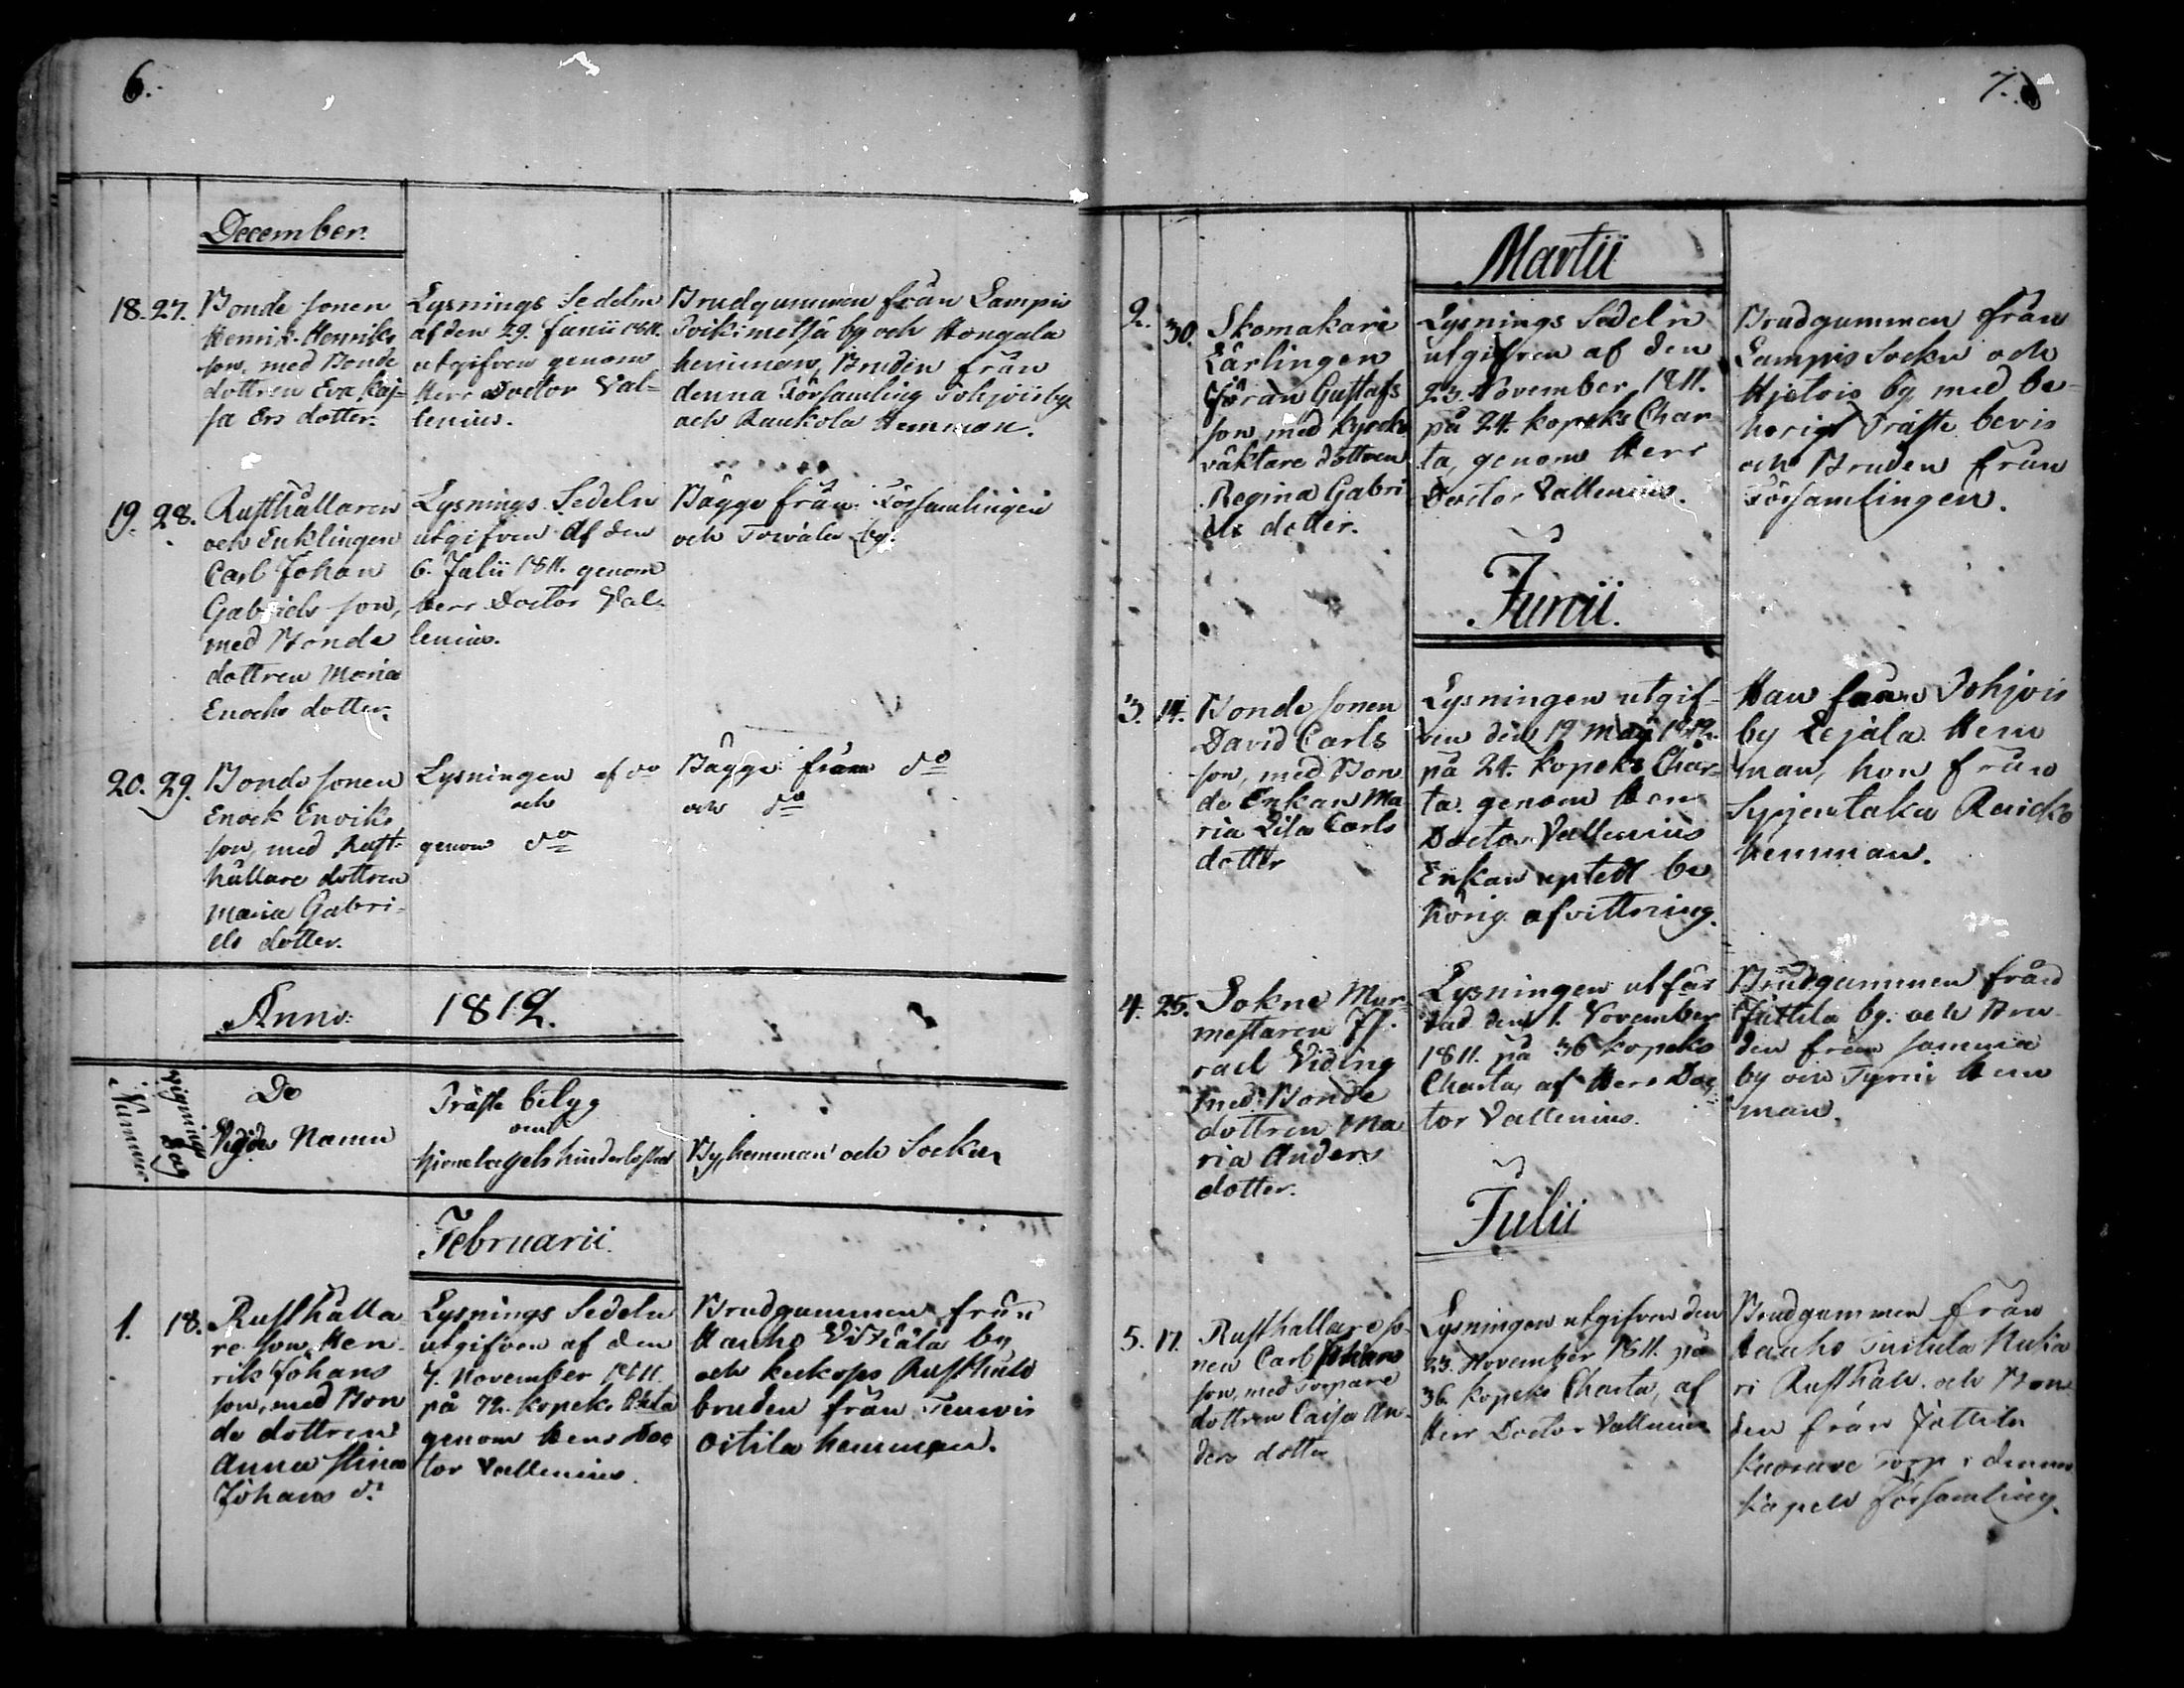 6.
December.
18. 27.
Bonde sonen
Henrik Henriks
son, med Bonde
dottren Eva Kaj-
sa Ers dotter.
Lysnings Sedeln
af den 29. Junii 1811.
utgifven genom
Herr Doctor Val-
lenius.
Brudgummen från Lampis
by och Hongala
hemman, Bruden från
denna Församling Pohjois by
och Raukola Hemman.
19. 28.
Rusthållaren
och Enklingen
Carl Johan
Gabriels son,
med Bonde
dottren Maria
Enochs dotter.
Lysnings Sedeln
utgifven af den
6. Julii 1811. genom
Herr Doctor Val-
lenius.
Bägge från Församlingen
och by.
20. 29.
Bonde sonen
Enock Enriks
son, med Rust-
hållare dottren
Maria Gabri-
els dotter.
Lysningen af do
och
genom do
Bägge från do
och do
Anno 1812.
Nummer
Vignings Dag
De
Vigdes Namn
Präste bilyg
om
hinderlöshet
By, hemman och Socken
Februarii
1. 18.
Rusthålla
re son Hen-
rik Johans
son, med Bon
de dottren
Anna Stina
Johans d:
Lysnings Sedeln
utgifven af den
7. November 1811.
på 72. kopek. Chta
genom Herr Doc
tor Vallenius.
Brudgummen från
Hauho Vitziälä by
och Rusthåll
bruden från
Oitila hemman.
7.
Martii
2. 30.
Skomakare
Lärlingen
Göran Gustafs
son, med kyrcko
väktare dottren
Regina Gabri
els dotter.
Lysnings Sedeln
utgifven af den
23. November, 1811.
på 24. kopeks Char
ta, genom Herr
Doctor Vallenius.
Brudgummen från
Lampis Socken och
by med be-
hörigt Präste bevis
och Bruden från
Församlingen.
Junii.
3. 14.
Bonde sonen
David Carls
son, med Bon
de Enkan Ma
ria Lisa Carls
dotter
Lysningen utgif-
ven den 19 Maji 1812.
på 24. kopeks Char-
ta. genom Herr
Doctor Vallenius
Enkan uptedt be
hörig afvittring.
Han från Pohjois
by Lejala Hem
man, hon från
Syrjentaka
hemman.
4. 25.
Sokne Mur-
mestaren Is-
rael Viding
med Bonde
dottren Ma
ria Anders
dotter.
Lysningen utfär
dad den 1. November
1811. på 36 kopeks
Charta, af Herr Doc
tor Vallenius.
Brudgummen från
Juttila by. och Bru
den från
by och Hem
man.
Julii
5. 17.
Rusthållare so-
nen Carl Johans
son, med Torpare
dottren Caisa An-
ders dotter
Lysningen utgifven den
23. November 1811. på
36. kopeks Charta, af
Herr Doctor Vallenius
Brudgummen från
Hauho
Rusthåll. och Bru
den från Juttila
Torp i denna
kapell Församling.